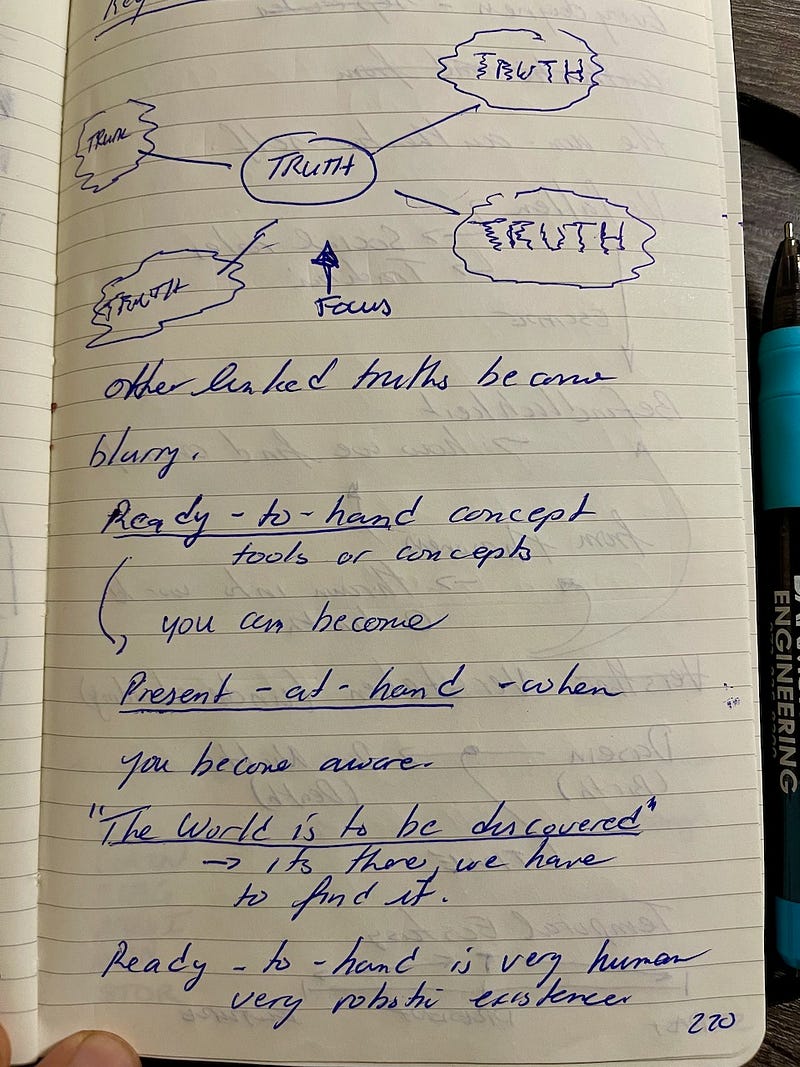 Key
TRUTH
TRUTH
TRUTH
TRUTH
TRUTH
Focus
other linked truths become
blurry.
Ready-to-hand concept
tools or concepts
you can become
Present-at-hand - when
you become aware.
"The World is to be discovered"
→ its there, we have
to find it.
Ready-to-hand is very human
very robotic
220
ENGINEERING